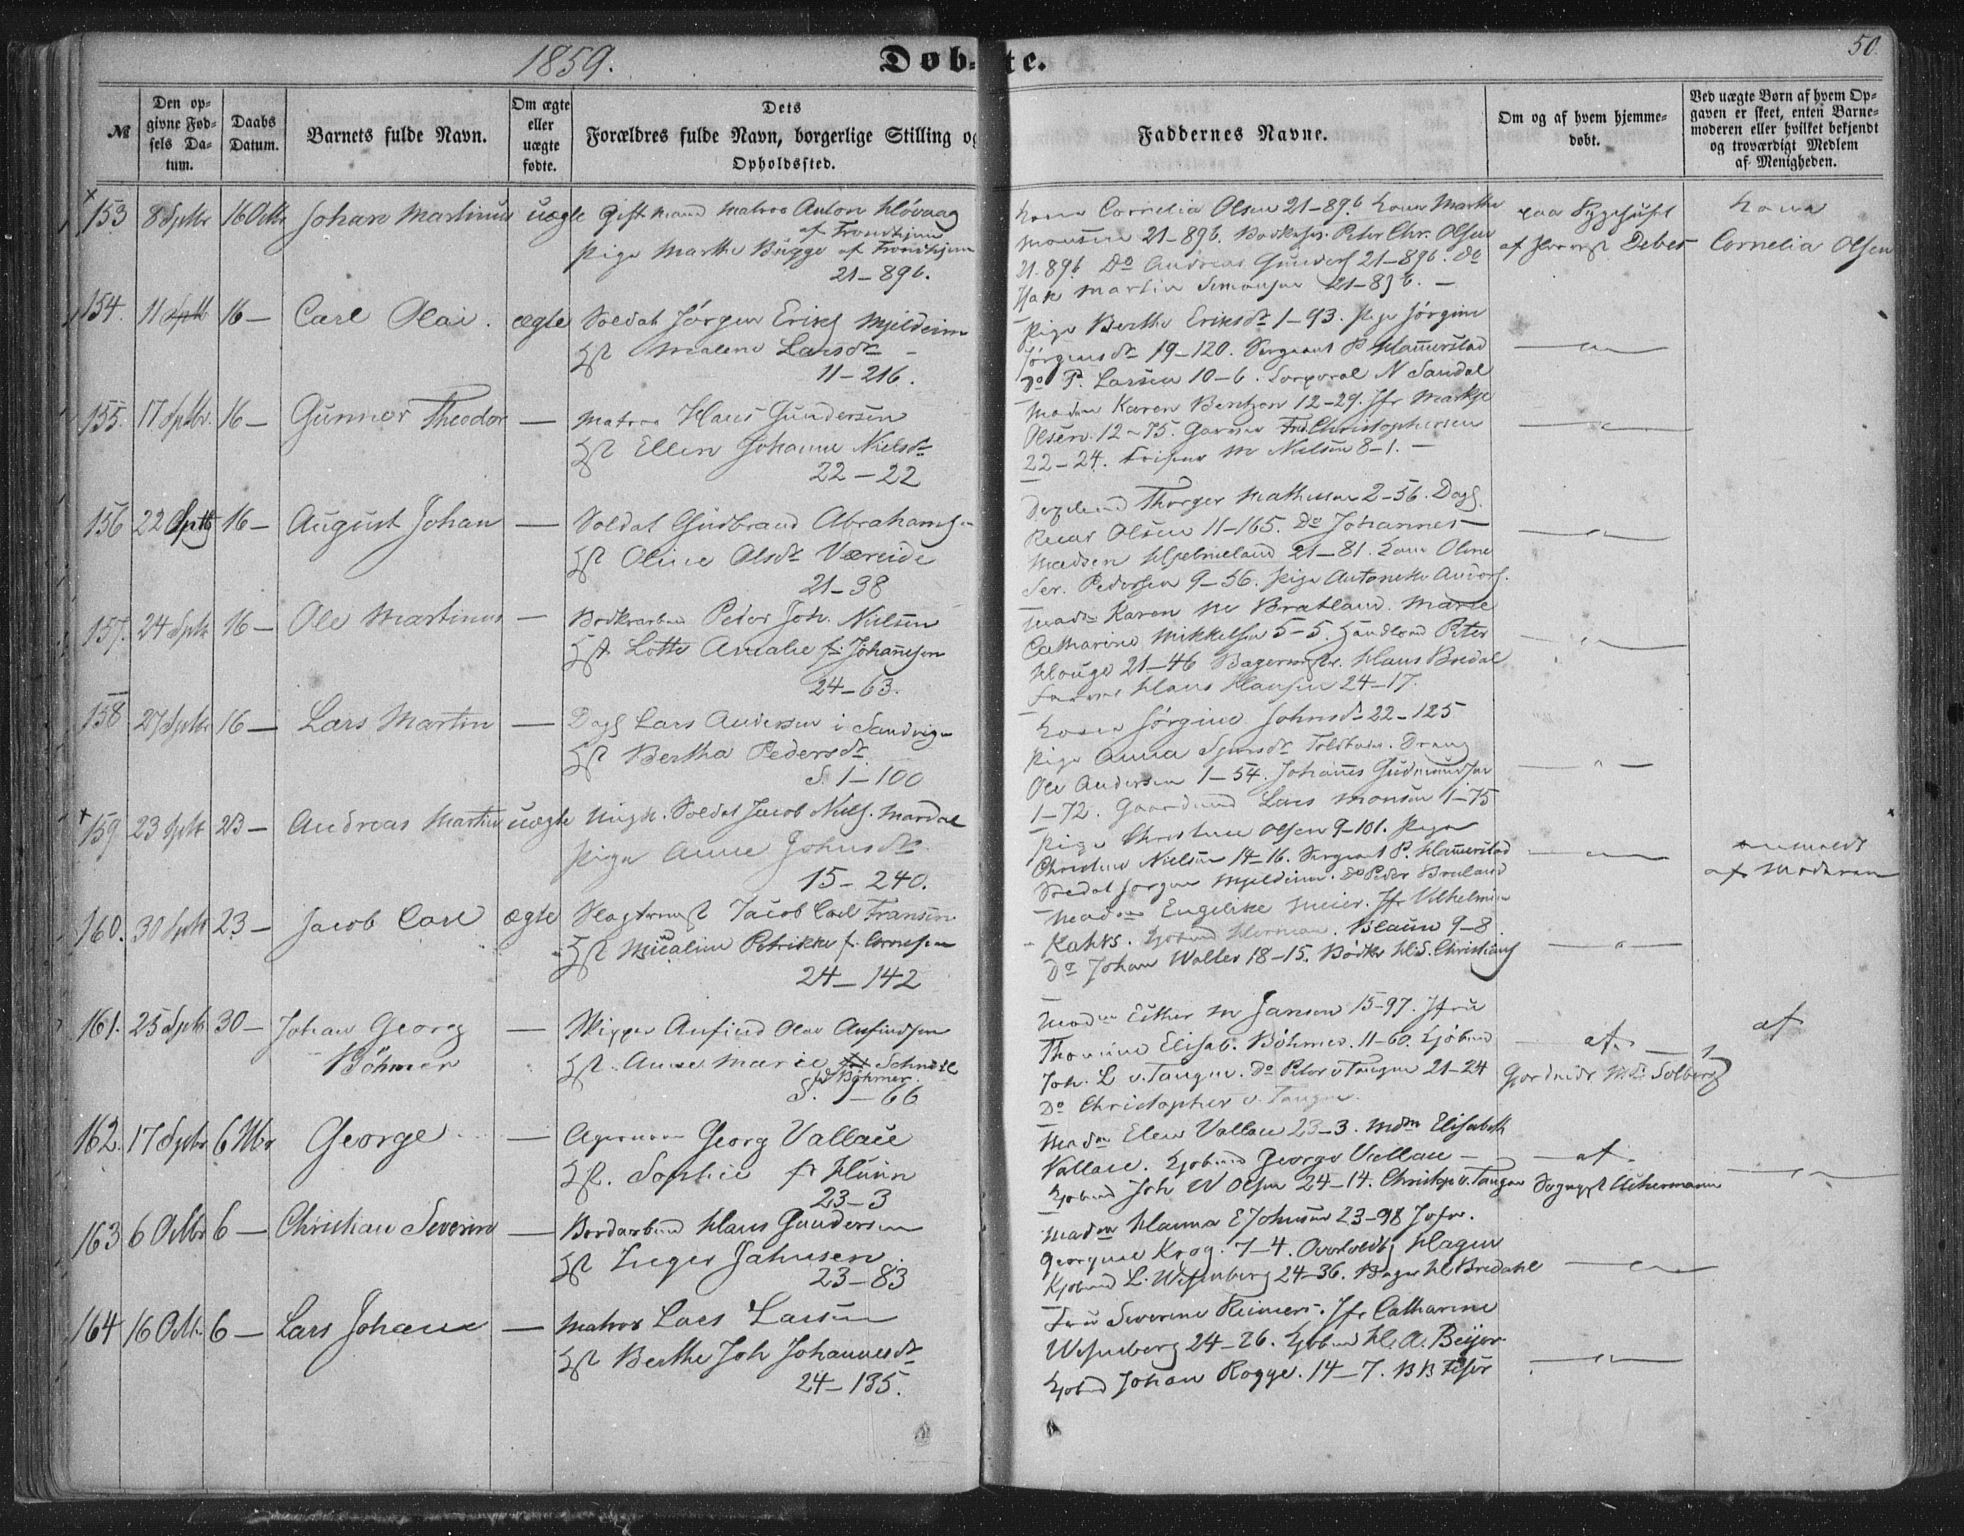 1859.
Døb- te.
50.
№
Den op-
givne Fød-
sels Da-
tum.
Daabs
Datum.
Barnets fulde Navn.
Om ægte
eller
uægte
fødte.
Dets
Forældres fulde Navn, borgerlige Stilling og
Opholdssted.
Faddernes Navne.
Om og af hvem hjemme-
døbt.
Ved uægte Børn af hvem Op-
gaven er skeet, enten Barne-
moderen eller hvilket bekjendt
og troværdigt Medlem
af Menigheden.
153 8 Sptbr 16 Octbr Johan Martinus uægte gift Mand Matros Anton Hóvaag
af Trondhjem
Pige Marthe Bügge af Trondhjem
21-896.
Kone Cornelia Olsen 21-896 Kone Marthe
Monsen 21-896. Peter Chr. Olsen
21.896 Do Andreas Gunders 21-896. Do
Martin Simonsen 21-896. —
paa Sygehuset
af Debes
Kone
Cornelia Olsen
154. 11 Sptb 16 — Carl Olai. ægte Soldat Jørgen Eriks Mjeldeim
Hst Malene Larsdr
11-216.
Pige Berthe Eriksdr 1-93. Pige Jørgine
Jørgensdr 19-120. Sergeant P Hammerstad
Do P. Larsen 10-6. Corporal N Sandal
155. 17 Sptbr. 16 — Gunner Theodor — Matros Hans Gundersen
Hst Ellen Johanne Nielsdr
22-22
Madm Karen Bentzon 12-29. Jfr Martje
Olsen. 12-75. Garver Fred Christophersen
22-24. M Nielsen 8-1. —
156 22 Sptb 16 — August Johan — Soldat Gudbrand Abrahams
Hst Oline Olsdr Væreide
21-38
Thorger Mathiesen 2-56. Dags
Olsen 11-165. Do Johannes
Madsen Hjelmeland 21-81. Kone Oline
Ser. Pedersen 9-56. Pige Antonette Anders.
157. 24 Sptb 16 — Ole Martinus — Bødkerarbeid Peder Joh. Nielsen
Hst Lotte Amalie f. Johannesen
24-63.
Madm Karen M Bratland. Marie
Catharine Mikkelsen 5-5. Handlend Peter
Houge 21-46 Bagermester Hans Bredal
Hans Hansen 24-17.
158 27 Sptbr 16 — Lars Martin — Dags Lars Andersen i Sandvigen
Hst Bertha Pedersdr.
S. 1-100
Kone Jørgine Johnsdr 22-125
Pige Anna Toldboden. Dreng
Ole Andersen 1-54. Johannes Gudmundsen
1-72. Gaardmand Lars Monsen 1-75
159. 23 Sptb 23 — Andreas Martin uægte Ungk. Soldat Jacob Niels. Mardal
Pige Anne Johnsdr
15-240.
Pige Christine Olsen 9-101. Pige
Christine Nielsen 14-16. Sergeant P. Hammerstad
Soldat Jørgen Mjeldeim. Do Peder Breland
anmeldt
af Moderen
160. 30 Sptb 23 — Jacob Carl ægte Slagterm Jacob Carl Fransen
Hst Micaline Petrikke f. Arnesen
24-142
Madm Engelike Meier. Jfr Vilhelmine
Kahrs. Kjøbmd Herman Blauw 9-8
Do Johan Woller 18-15. Bødker H.S. Christians
161. 25 Sptb. 30 — Johan Georg
Böhmer
— Skipper Anfind Olai Anfindsen
Hst. Anne Marie
fd Böhmer.
S. 1-66
Madm Esther M Jansen 15-97. Jfru
Thomine Elisab. Böhmer. 11-60. Kjøbmd
Joh. L v. Tangen. Do Peter v Tangen 21-24
Do Christopher v. Tangen.
— af.
Jordmdr Solberg
af
162. 17 Sptbr 6 Nbr George — Agermann Georg Vallace
Hst. Sophie f. Huun
23-3
Madm Elen Vallace 23-3. Mdm Elisabeth
Vallace. Kjøbmd George Vallace —
Kjøbmd Joh W Olsen 24-14. Christop v. Tangen
— af.
Sognepst Uchermann
163 6 Octbr 6 — Christian Severin — Bordarbeid Hans Gundersen
Hst Inger Jahnsen.
23-83
Madm Hanna E Johnsen 23-98 Jofr.
Georgine Krog. 7-4. Hagen
Kjøbmd L. Wesenberg 24-36. Bager H Bredahl
164 16 Octb. 6 — Lars Johan — Matros Lars Larsen
Hst Berthe Joh Johannesdr
24-135.
Fru Severine Reimers. Jfr Catharine
Wesenberg 24-26. Kjøbmd H. A. Beijer
Kjøbmd Johan Rogge. 14-7. B B